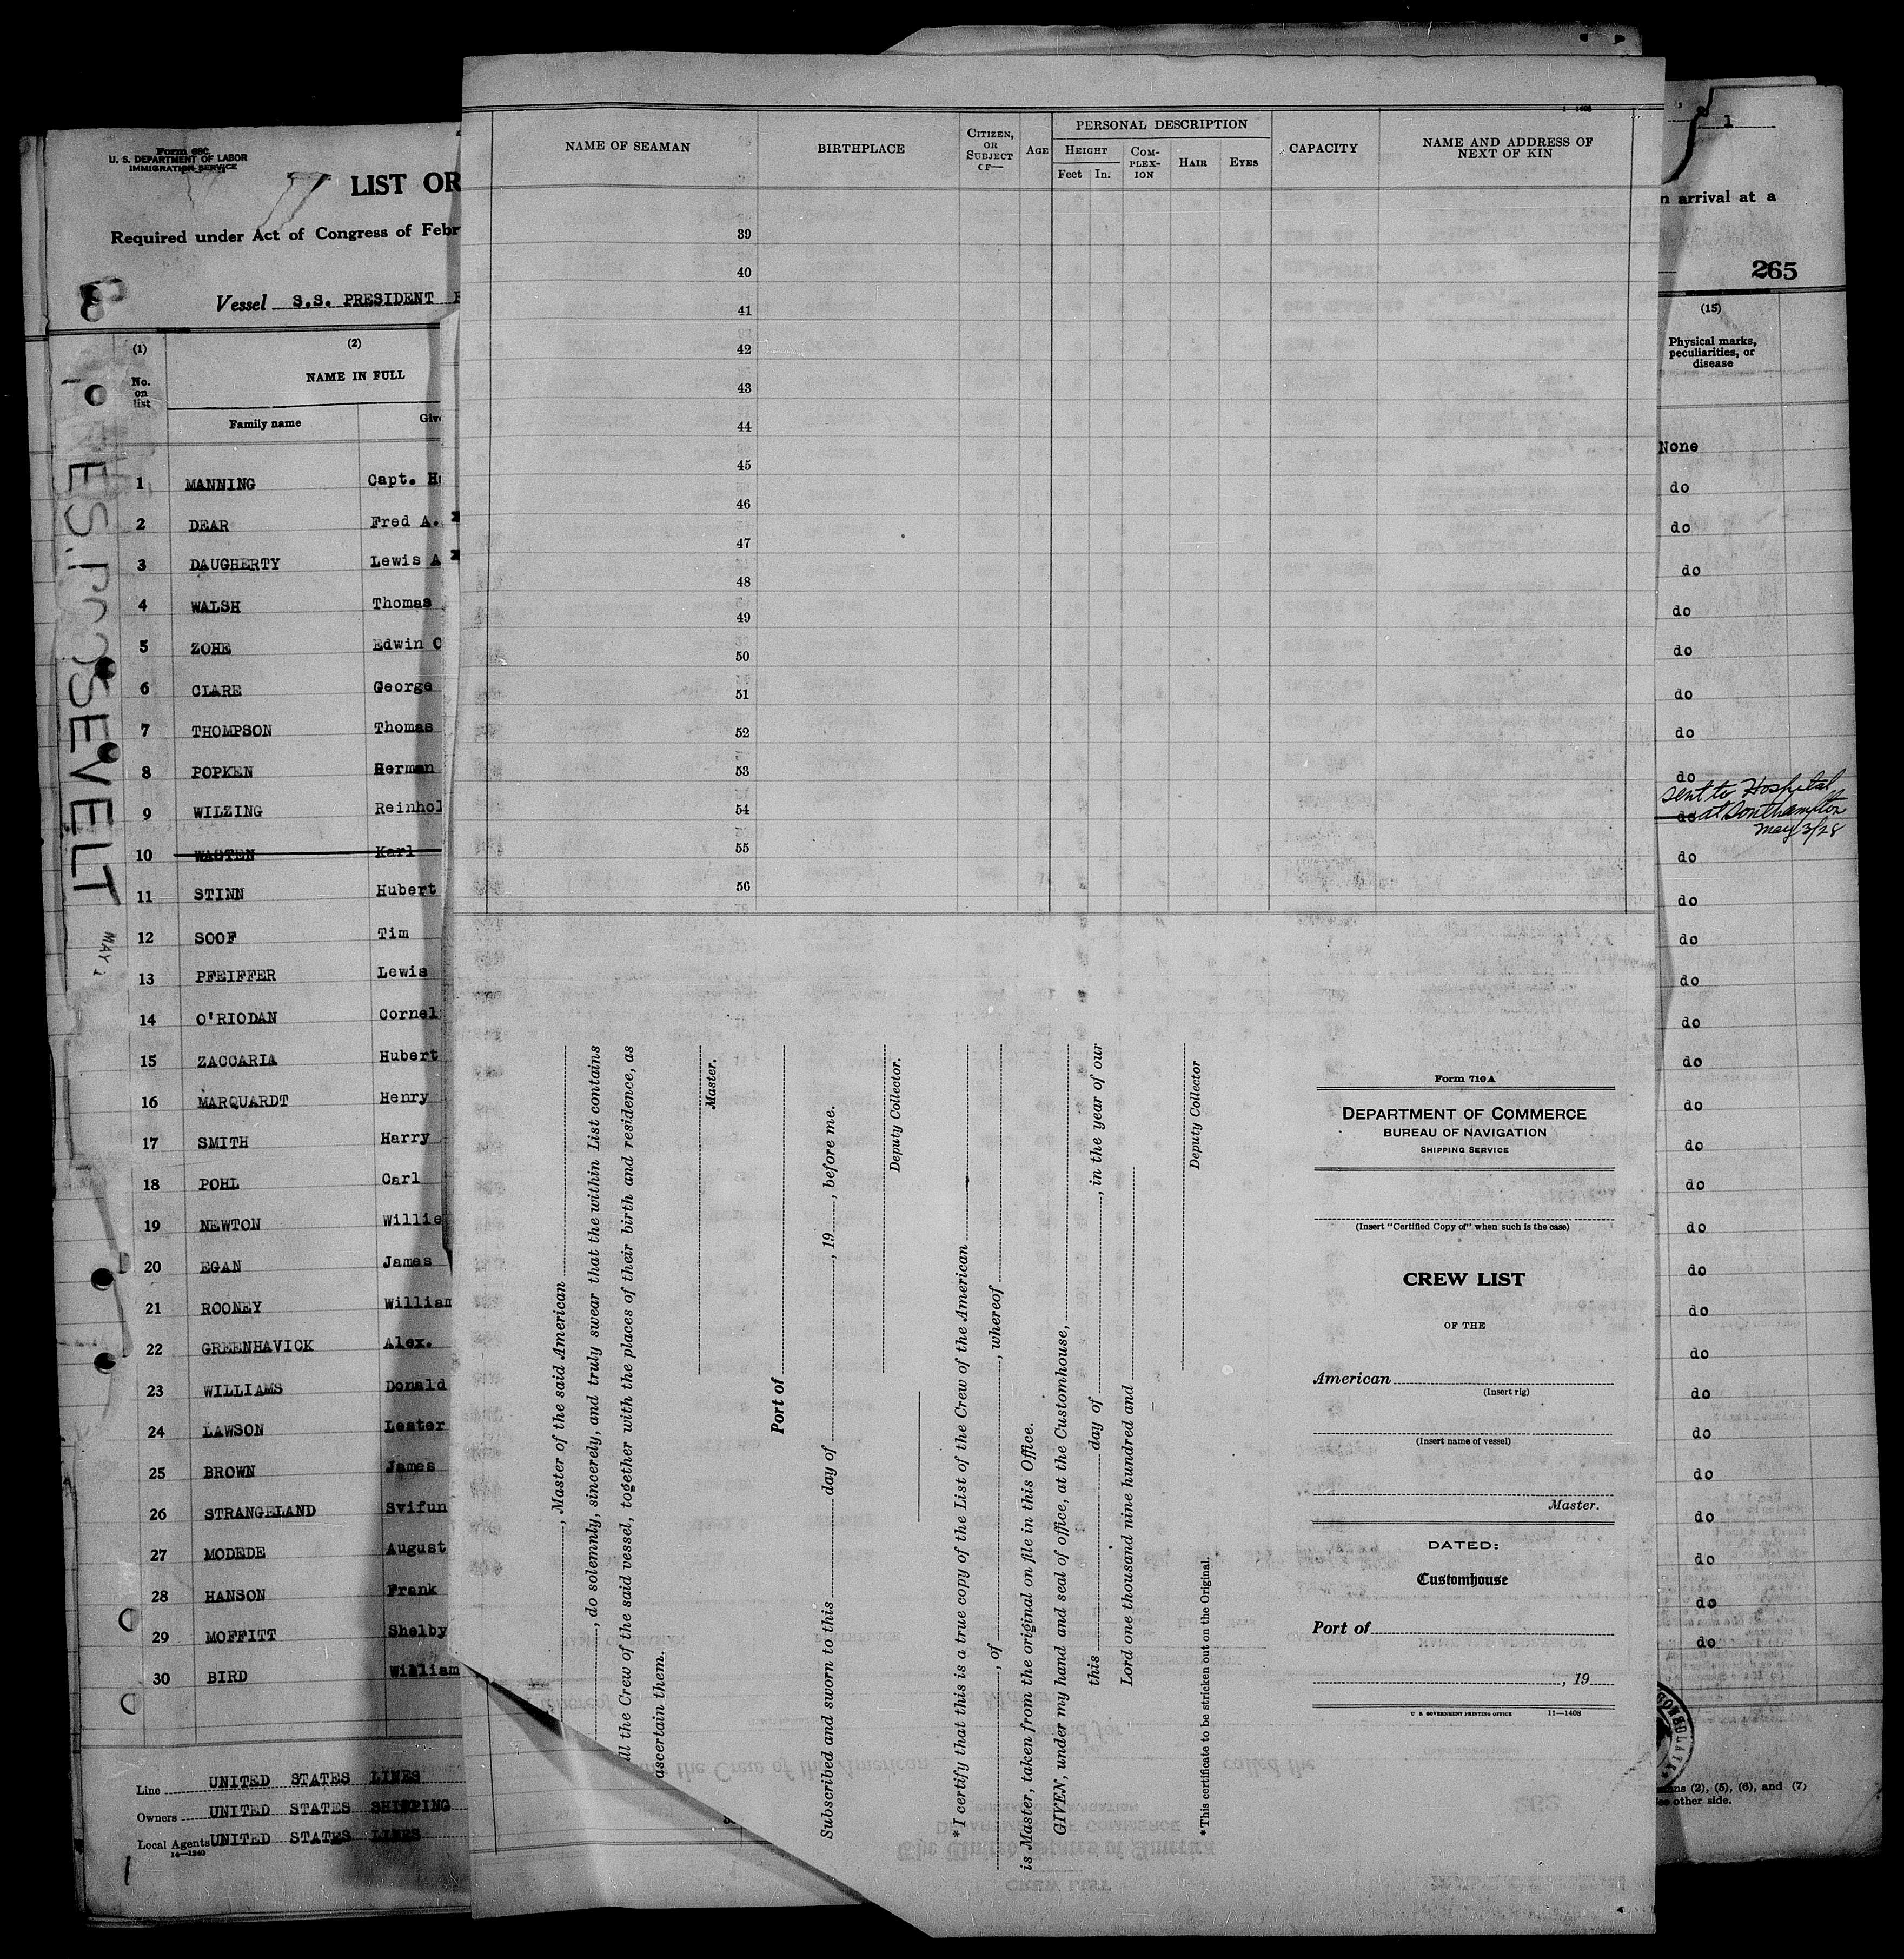 Form 680
U. S. DEPARTMENT OF LABOR
IMMIGRATION SERVICE
LIST OR
Required under Act of Congress of Febr
8
Vessel S.S. PRESIDENT
(1) (2)
No. on list
NAME IN FULL
Family name Giv
1 MANNING Capt. H
2 DEAR Fred A.
3 DAUGHERTY Lewis A
4 WALSH Thomas
5 ZOHE Edwin C
6 CLARE George
7 THOMPSON Thomas
8 POPKEN Herman
9 WILZING Reinhol
10 WASTEN Karl
11 STINN Hubert
12 SOOF Tim
13 PFEIFFER Lewis
14 O'RIODAN Cornel
15 ZACCARIA Hubert
16 MARQUARDT Henry
17 SMITH Harry
18 POHL Carl
19 NEWTON Willie
20 EGAN James
21 ROONEY William
22 GREENHAVICK Alex.
23 WILLIAMS Donald
24 LAWSON Lester
25 BROWN James
26 STRANGELAND Svifun
27 MODEDE August
28 HANSON Frank
29 MOFFITT Shelby
30 BIRD William
Line UNITED STATES LINES
Owners UNITED STATES SHIPPING
Local Agents UNITED STATES LINES
14—1240
PRES. ROOSEVELT
MAY 1
1—1408
NAME OF SEAMAN
BIRTHPLACE
CITIZEN, OR SUBJECT OF—
AGE
PERSONAL DESCRIPTION
HEIGHT
Feet In.
COM-PLEX-ION
HAIR
EYES
CAPACITY
NAME AND ADDRESS OF NEXT OF KIN
39
40
41
42
43
44
45
46
47
48
49
50
51
52
53
54
55
56
, Master of the said American
, do solemnly, sincerely, and truly swear that the within List contains
ll the Crew of the said vessel, together with the places of their birth and residence, as
ascertain them.
Master.
Port of
Subscribed and sworn to this day of , 19 , before me.
Deputy Collector.
*I certify that this is a true copy of the List of the Crew of the American
, of , whereof
is Master, taken from the original on file in this Office.
GIVEN, under my hand and seal of office, at the Customhouse,
this day of , in the year of our
Lord one thousand nine hundred and
Deputy Collector
*This certificate to be stricken out on the Original.
Form 710A
DEPARTMENT OF COMMERCE
BUREAU OF NAVIGATION
SHIPPING SERVICE
(Insert "Certified Copy of" when such is the case)
CREW LIST
OF THE
American
(Insert rig)
(Insert name of vessel)
Master.
DATED:
Customhouse
Port of
, 19
U. S. GOVERNMENT PRINTING OFFICE 11—1408
1
n arrival at a
265
(15)
Physical marks, peculiarities, or disease
None
do
do
do
do
do
do
do
do
sent to Hospital
do at Southampton
May 3/28
do
do
do
do
do
do
do
do
do
do
do
do
do
do
do
do
do
do
do
do
ns (2), (5), (6), and (7)
ee other side.